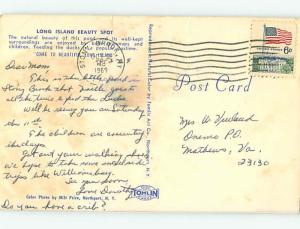 LONG ISLAND BEAUTY SPOT
The natural beauty of this pond and its well-kept
surroundings are enjoyed by both grownups and
children. Feeding the ducks is a popular pastime.
"COME TO BEAUTIFUL LONG ISLAND"
Dear Mom
This is the little pond in
Stony Brook that
all the time to feed the ducks
Will be seeing you on Saturday
the 11th.
The children are counting
the days.
Get out your walking shoes
we hope to take some
trips like Williamsburg.
See you soon,
Love Dorothy
Color Photo by Milt Price, Northport, N. Y.
Do you have a crib?
Reproduced from Natural Color by Tomlin Art Co., Northport, N. Y.
TOMLIN
STONY BROOK, N.Y.
1969
6¢
Post Card
Mrs W
P.O.
Mathews, Va.
23130